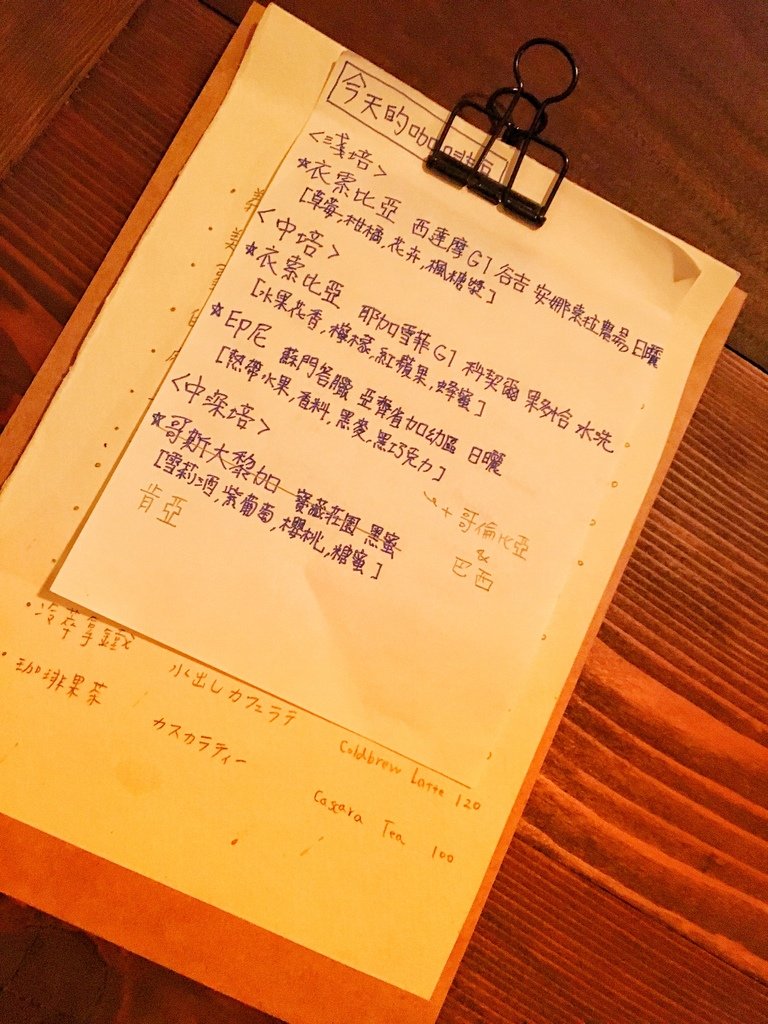 今天的咖啡
<淺培>
☆衣索比亞 西達摩 G1 谷吉 安娜索拉農場 日曬
[草莓,柑橘,花卉,楓糖漿]
<中培>
☆衣索比亞 耶加雪菲 G1 科契爾 水洗
[水果花香,檸檬,紅蘋果,蜂蜜]
☆印尼 蘇門答臘 亞齊省 如幼區 日曬
[熱帶水果,香料,黑麥,黑巧克力]
<中深培>
☆哥斯大黎加 寶藏莊園 黑蜜
[雪莉酒,紫葡萄,櫻桃,糖蜜]
肯亞
+哥倫比亞
&
巴西
·冷萃拿鐵 水出しカフェラテ Coldbrew Latte 120
·珈琲果茶 カスカラティー Cascara Tea 100